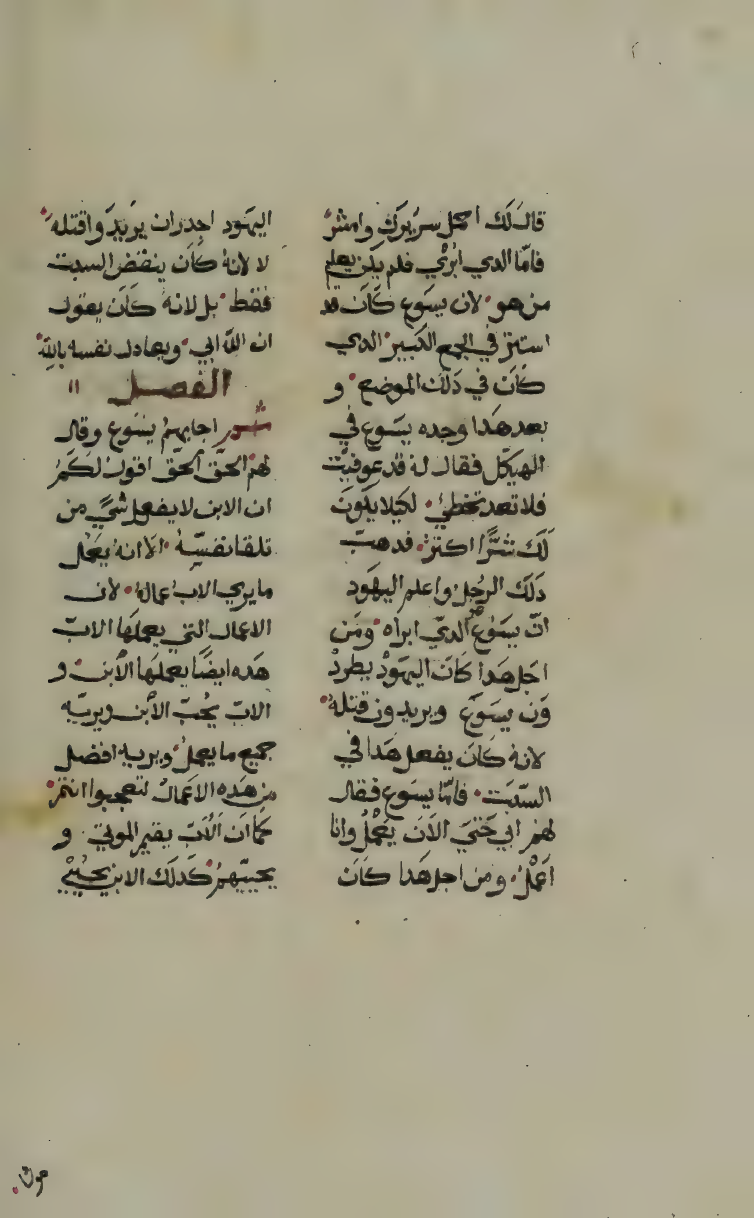 قال لك احمل سريرك وامش
فامّا الدي ابرئ فلم يكن يعلم
من هو لان يسوع كان قد
استتر في الجمع الكبير الدي
كان في دلك الموضع و
بعد هدا وجده يسوع في
الهيكل فقال له قد عوفيت
فلا تعد تخطئ لكيلا يكون
لك شرًّا اكتر فدهب
دلك الرجل واعلم اليهود
انّ يسوع هو الدي ابراه ومن
اجل هدا كان اليهود يطرد
ون يسوع ويريدون قتله
لانه كان يفعل هدا في
السبت فامّا يسوع فقال
لهم ابي حتى الان يعمل وانا
اعمل ومن اجل هدا كان
اليهود اجدر ان يريدوا قتله
لا لانه كان ينقض السبت
فقط بل لانه كان يقول
ان الله ابي ويعادل نفسه بالله
الفصل ١١
اجابهم يسوع وقال
لهم الحق الحق اقول لكم
ان الابن لا يفعل شي من
تلقا نفسه الا انه يعمل
ما يرى الاب عماله لان
الاعمال التي يعملها الاب
هده ايضًا يعملها الابن و
الاب يحب الابن ويريه
جميع ما يعمل ويريه افضل
من هده الاعمال لتعجبوا انتم
كما ان الاب يقيم الموتى و
يحييهم كدلك الابن يحيي